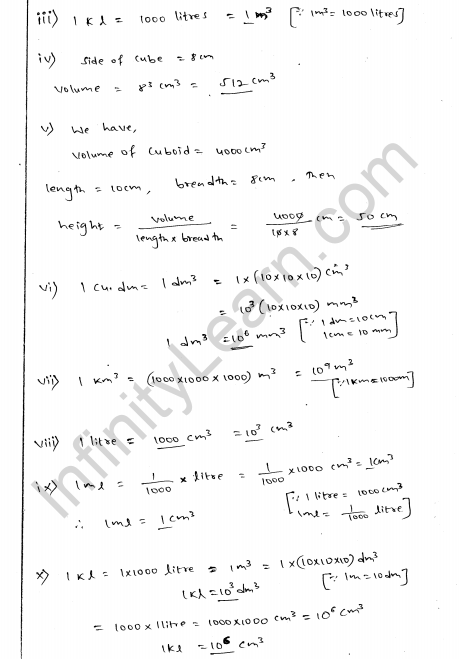 iii) 1 Kl = 1000 litres = 1 m³ [∵ 1m³ = 1000 litres]
iv) side of cube = 8cm
volume = 8³ cm³ = 512 cm³
v) We have,
volume of cuboid = 4000cm³
length = 10cm, breadth = 8cm, then
height = volume / length x breadth = 4000 / 10 x 8 cm = 50 cm
vi) 1 cu. dm = 1 dm³ = 1 x (10x10x10) cm³
= 10³ (10x10x10) mm³
1 dm³ = 10⁶ mm³ [∵ 1 dm = 10cm
1cm = 10 mm]
vii) 1 Km³ = (1000 x 1000 x 1000) m³ = 10⁹ m³
[∵ 1Km = 1000m]
viii) 1 litre = 1000 cm³ = 10³ cm³
ix) 1ml = 1/1000 x litre = 1/1000 x 1000 cm³ = 1cm³
∴ 1ml = 1 cm³ [∵ 1 litre = 1000cm³
1ml = 1/1000 litre]
x) 1 Kl = 1x1000 litre = 1m³ = 1 x (10x10x10) dm³
1Kl = 10³ dm³ [∵ 1m = 10dm]
= 1000 x 1litre = 1000 x 1000 cm³ = 10⁶ cm³
1Kl = 10⁶ cm³
InfinityLearn.com